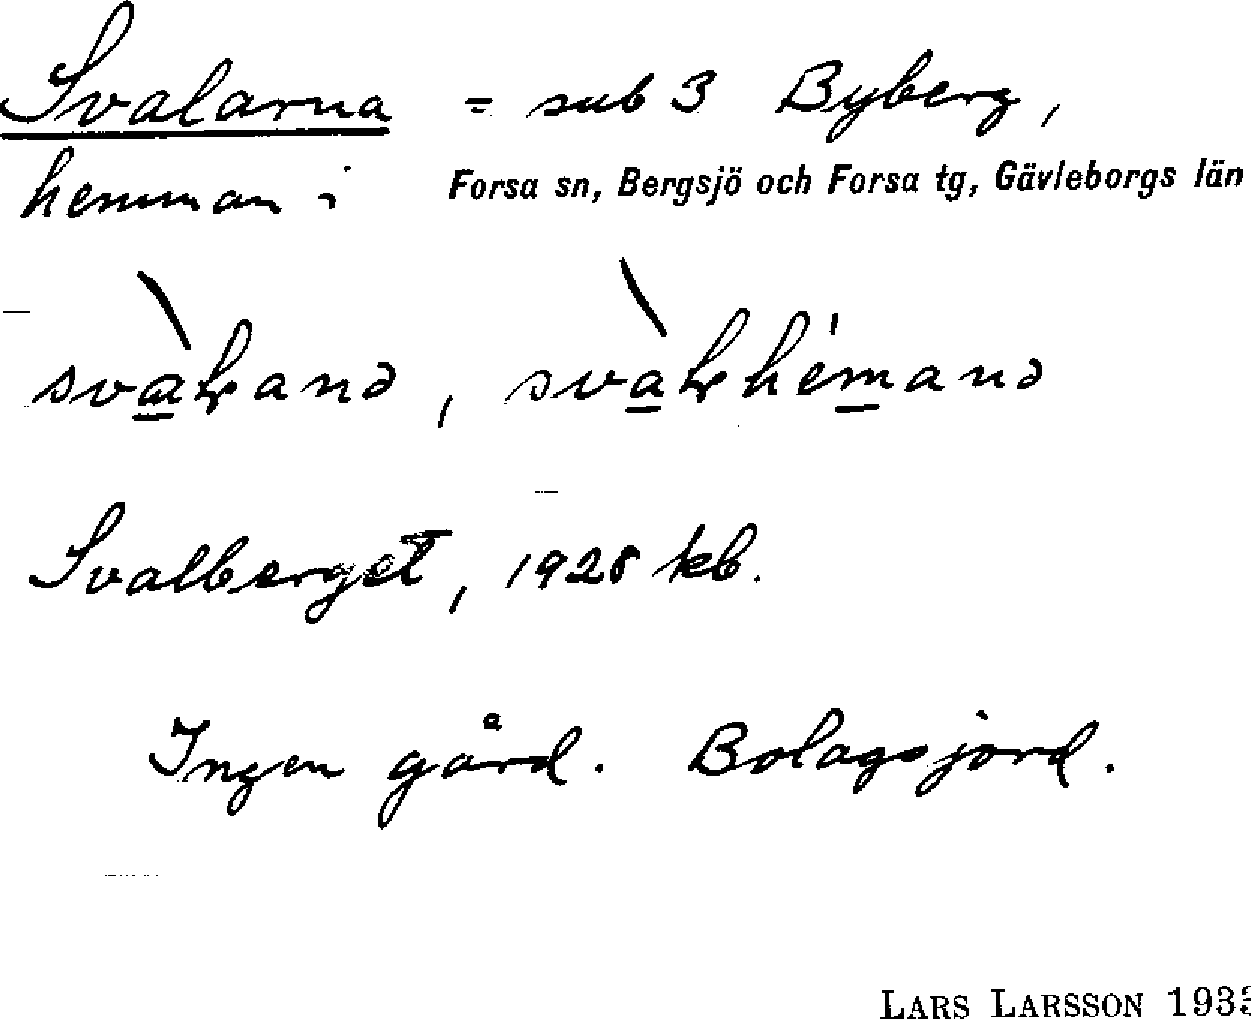 Svalarna = sub 3 Byberg,
hemman i Forsa sn, Bergsjö och Forsa tg, Gävleborgs län
Svalberget, 1928 kb.
Ingen gård. Bolagsjord.
LARS LARSSON 193